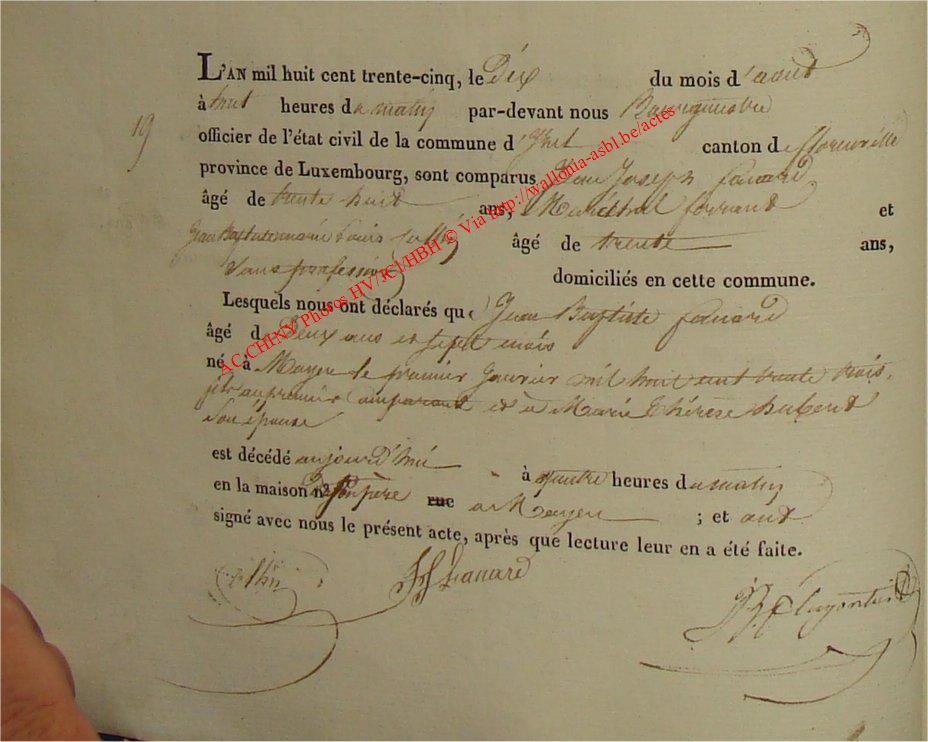 L'AN mil huit cent trente-cinq, le Dix du mois d'aout
à huit heures du matin par-devant nous Bourgumestre
19
officier de l'état civil de la commune d' canton de florenville
province de Luxembourg, sont comparus Jean Joseph fanard
âgé de trente huit ans, Maréchal ferrant et
Jean Baptiste marie Louis âgé de trente ans,
Sans profession domiciliés en cette commune.
Lesquels nous ont déclarés que Jean Baptiste fanard
âgé de Deux ans et sept mois
né à Moyen le premier Janvier mil huit cent trente trois,
fils au premier comparant et à Marie Thérèse hubert
Son épouse
est décédé aujourd'hui à quatre heures du matin
en la maison n.° De son père rue a Moyen ; et ont
signé avec nous le présent acte, après que lecture leur en a été faite.
JJ fanard
AC CHINY Photos HV/JCJ/HBH © Via http://wallonia-asbl.be/actes